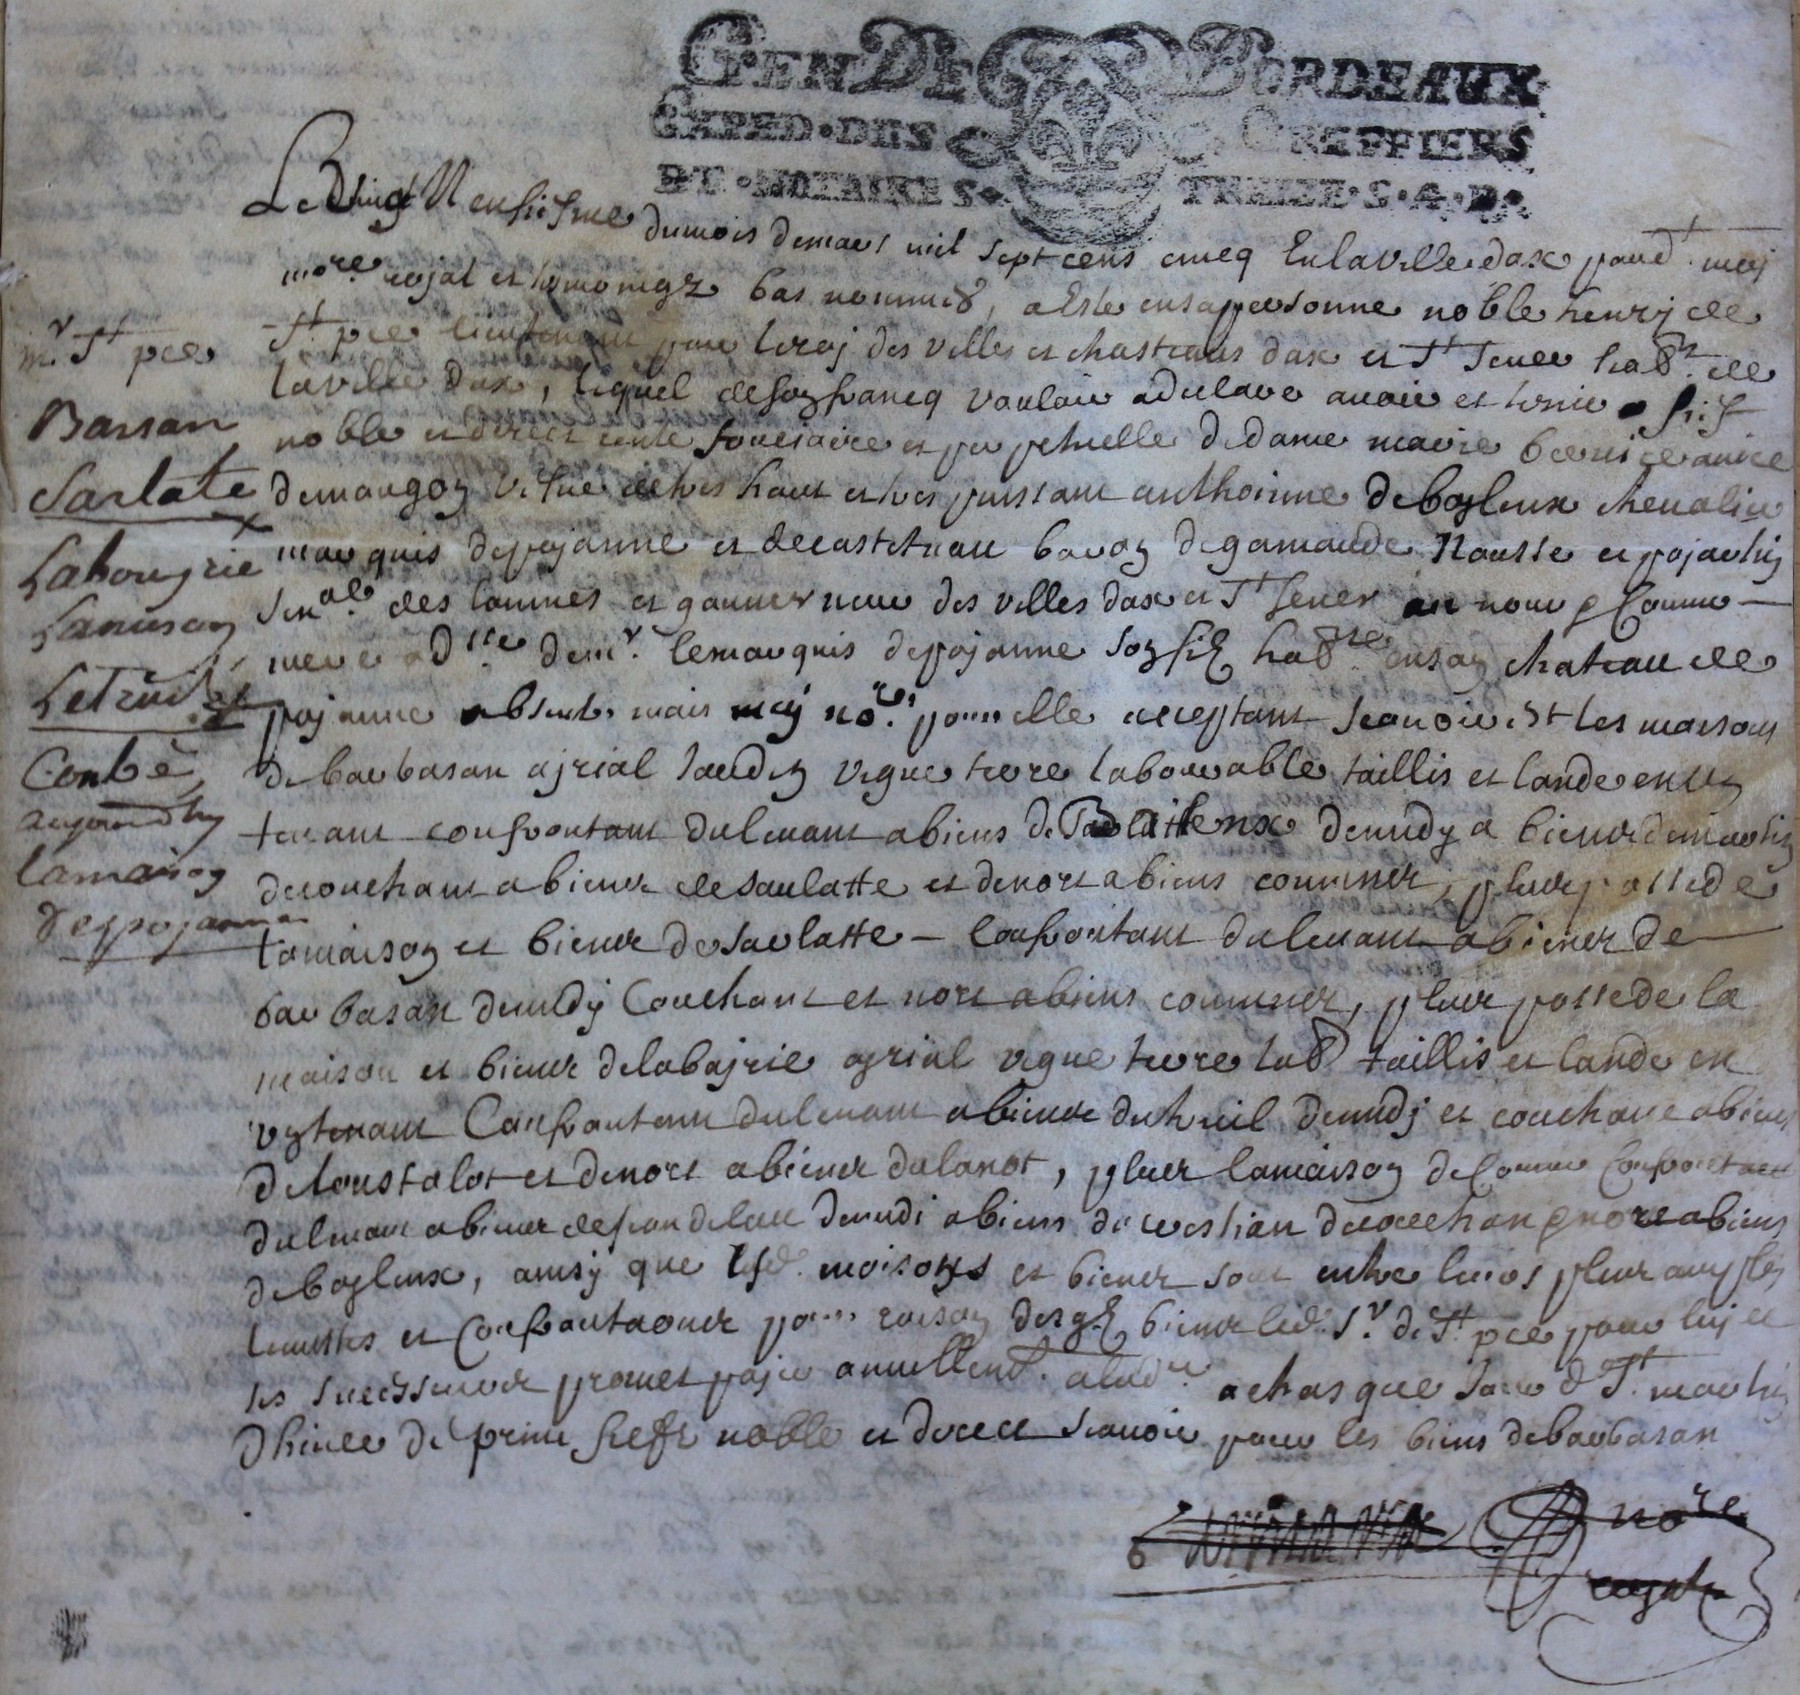 GEN DE BORDEAUX
EXPED·DES GREFFIERS
ET·NOTAIRES· TREIZE·S·A·D·
Le vingt neufiesme dumois demars mil sept cens cincq En laville dax pard.t moy
no.re rojal et temoingz bas nommés, a Este ensapersonne noble henry de
St. pee lieutenant pour leroj des villes et chasteaus dax et St Sever hab.t de
laville dax, lequel desonfrancq vouloir adeclare avoir et tenir a fief
noble et direct rente fonciaire et perpetuelle de dame marie
demongon vefve detres haut et tres puissant anthoinne de baylenx chevalier
marquis depojanne et decastetnau baron de gamarde Nousse et pojartin
sen.al des lannes et gouverneur des villes dax et St Sever au nom et comme
mere de m.r lemarquis depojanne son fils hab.te enson chateau de
pojanne absente mais moy no.re pour elle acceptant scavoir est les maisons
de barbasan ajrial jardin vigne terre labourable taillis et lande enun
tenant confrontant dulevant abiens de demidy a biens demartin
decouchant abiens desarlatte et denort abiens communs, plus possede
lamaison et biens desarlatte – confrontant dulevant abiens de
barbasan demidy couchant et nort abiens communs, plus possede la
maison et biens delabojrie ajrial vigne terre lab taillis et lande en
untenant Confrontant dulevant abiens dutreuil demidj et couchant abiens
deloustalot et denort abiens dulanot, plus lamaison de confrontant
dulevant abiens de demidi abiens de decouchan et nort abiens
debaylenx, ainsy que lesd. maisons et biens sont entre leurs plus amples
limittes et Confrontaons pour raison desqls biens led. S.r de St. pee pour luj et
ses successeurs promet pajer annuellem.t alad.e achasque jour d St. martin
dhiver de prim fieff noble et direct scavoir pour les biens debarbasan
no.re
royal
m.r St pee
Barsan
Sarlate
Labouyrie
Lanusan
Letruilh
Conte
aujourdhy
lamaison
depojanne